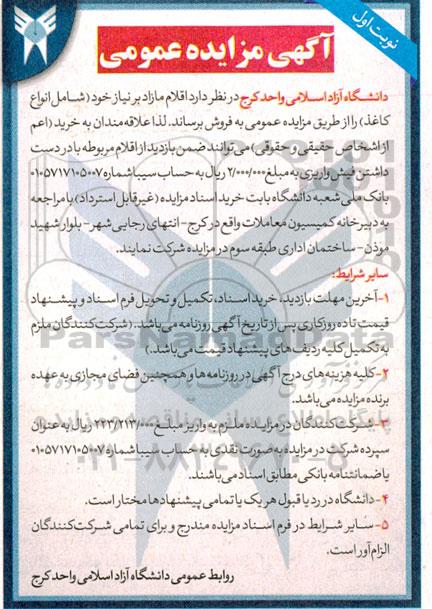 نوبت اول
آگهی مزایده عمومی
دانشگاه آزاد اسلامی واحد کرج در نظر دارد اقلام مازاد بر نیاز خود (شامل انواع
کاغذ) را از طریق مزایده عمومی به فروش برساند. لذا علاقه‌مندان به خرید (اعم
از اشخاص حقیقی و حقوقی) می‌توانند ضمن بازدید از اقلام مربوطه با در دست
داشتن فیش واریزی به مبلغ ۲/۰۰۰/۰۰۰ ریال به حساب سیبا شماره ۰۱۰۵۷۱۷۱۰۵۰۰۷
بانک ملی شعبه دانشگاه بابت خرید اسناد مزایده (غیرقابل استرداد) با مراجعه
به دبیرخانه کمیسیون معاملات واقع در کرج- انتهای رجایی شهر- بلوار شهید
موذن- ساختمان اداری طبقه سوم در مزایده شرکت نمایند.
سایر شرایط:
۱- آخرین مهلت بازدید، خرید اسناد، تکمیل و تحویل فرم اسناد و پیشنهاد
قیمت تا ده روز کاری پس از تاریخ آگهی روزنامه می‌باشد. (شرکت‌کنندگان ملزم
به تکمیل کلیه ردیف‌های پیشنهاد قیمت می‌باشد.)
۲- کلیه هزینه‌های درج آگهی در روزنامه‌ها و همچنین فضای مجازی به عهده
برنده مزایده می‌باشد.
۳- شرکت کنندگان در مزایده ملزم به واریز مبلغ ۲۴۳/۲۱۳/۰۰۰ ریال به عنوان
سپرده شرکت در مزایده به صورت نقدی به حساب سیبا شماره ۰۱۰۵۷۱۷۱۰۵۰۰۷
یا ضمانتنامه بانکی مطابق اسناد می‌باشند.
۴- دانشگاه در رد یا قبول هر یک یا تمامی پیشنهادها مختار است.
۵- سایر شرایط در فرم اسناد مزایده مندرج و برای تمامی شرکت‌کنندگان
الزام‌آور است.
روابط عمومی دانشگاه آزاد اسلامی واحد کرج
ParsNamadData
۰۲۱-۸۸۳۴۹۶۷۰-۵